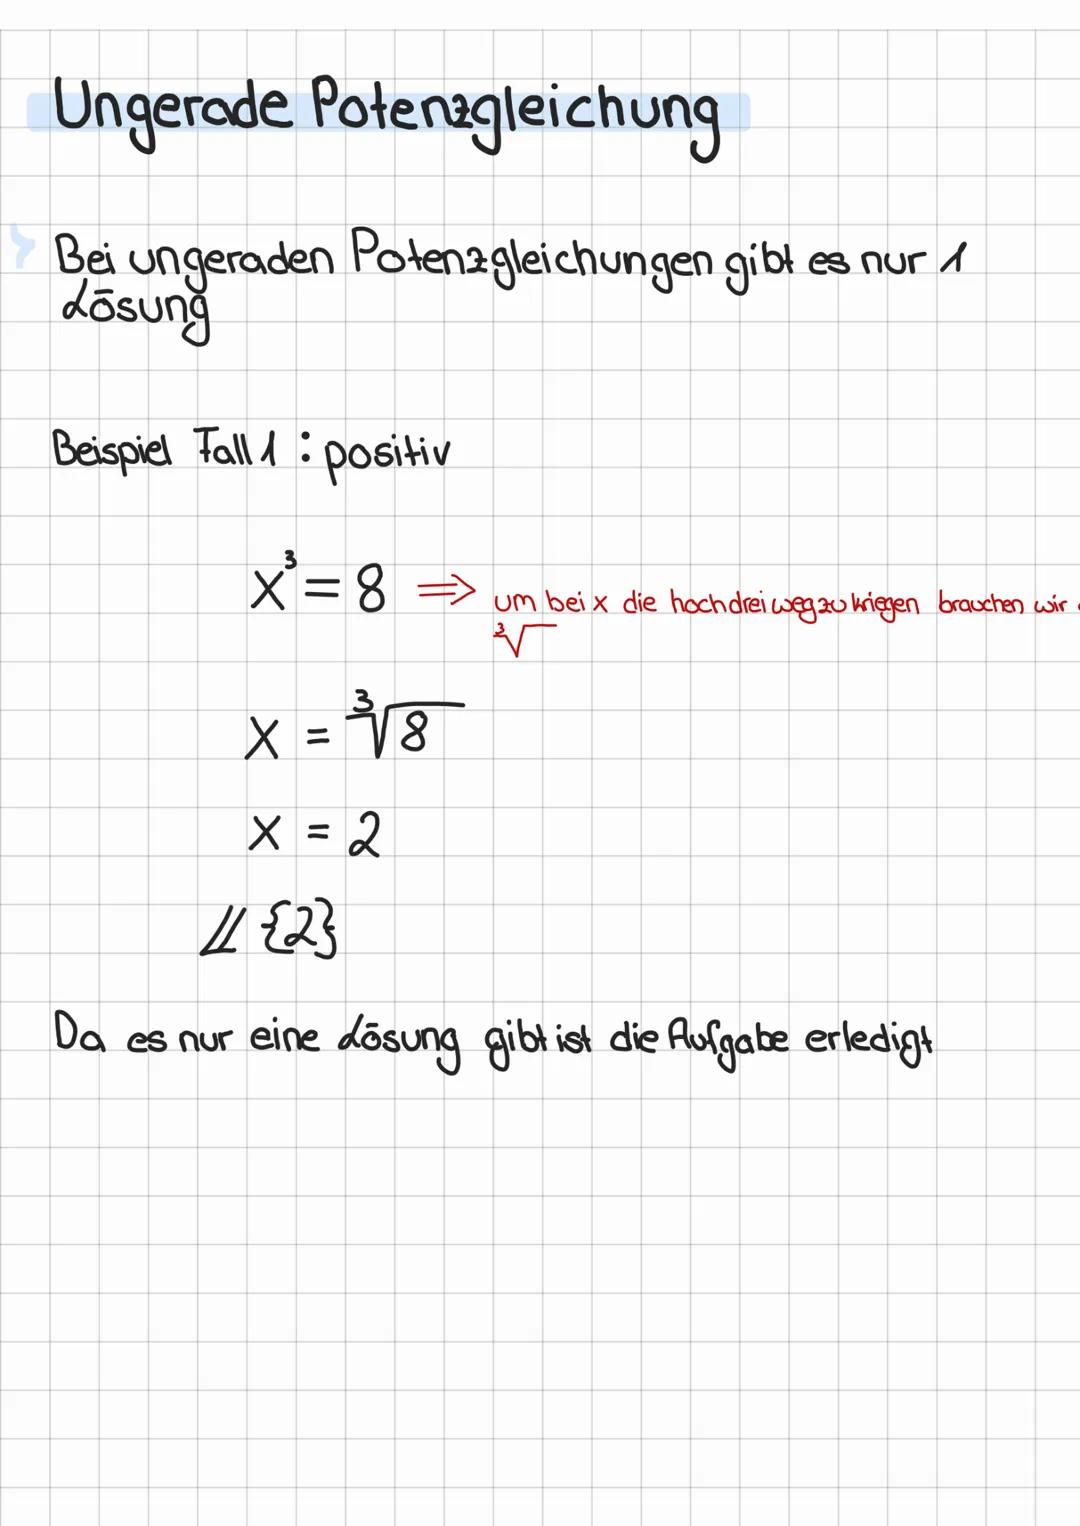 Ungerade Potenzgleichung
Bei ungeraden Potenzgleichungen gibt es nur 1
Lösung
Beispiel Fall 1 : positiv
x³ = 8 ⇒ um bei x die hoch drei weg zu kriegen brauchen wir
³√
x = ³√8
x = 2
𝕃 {2}
Da es nur eine Lösung gibt ist die Aufgabe erledigt